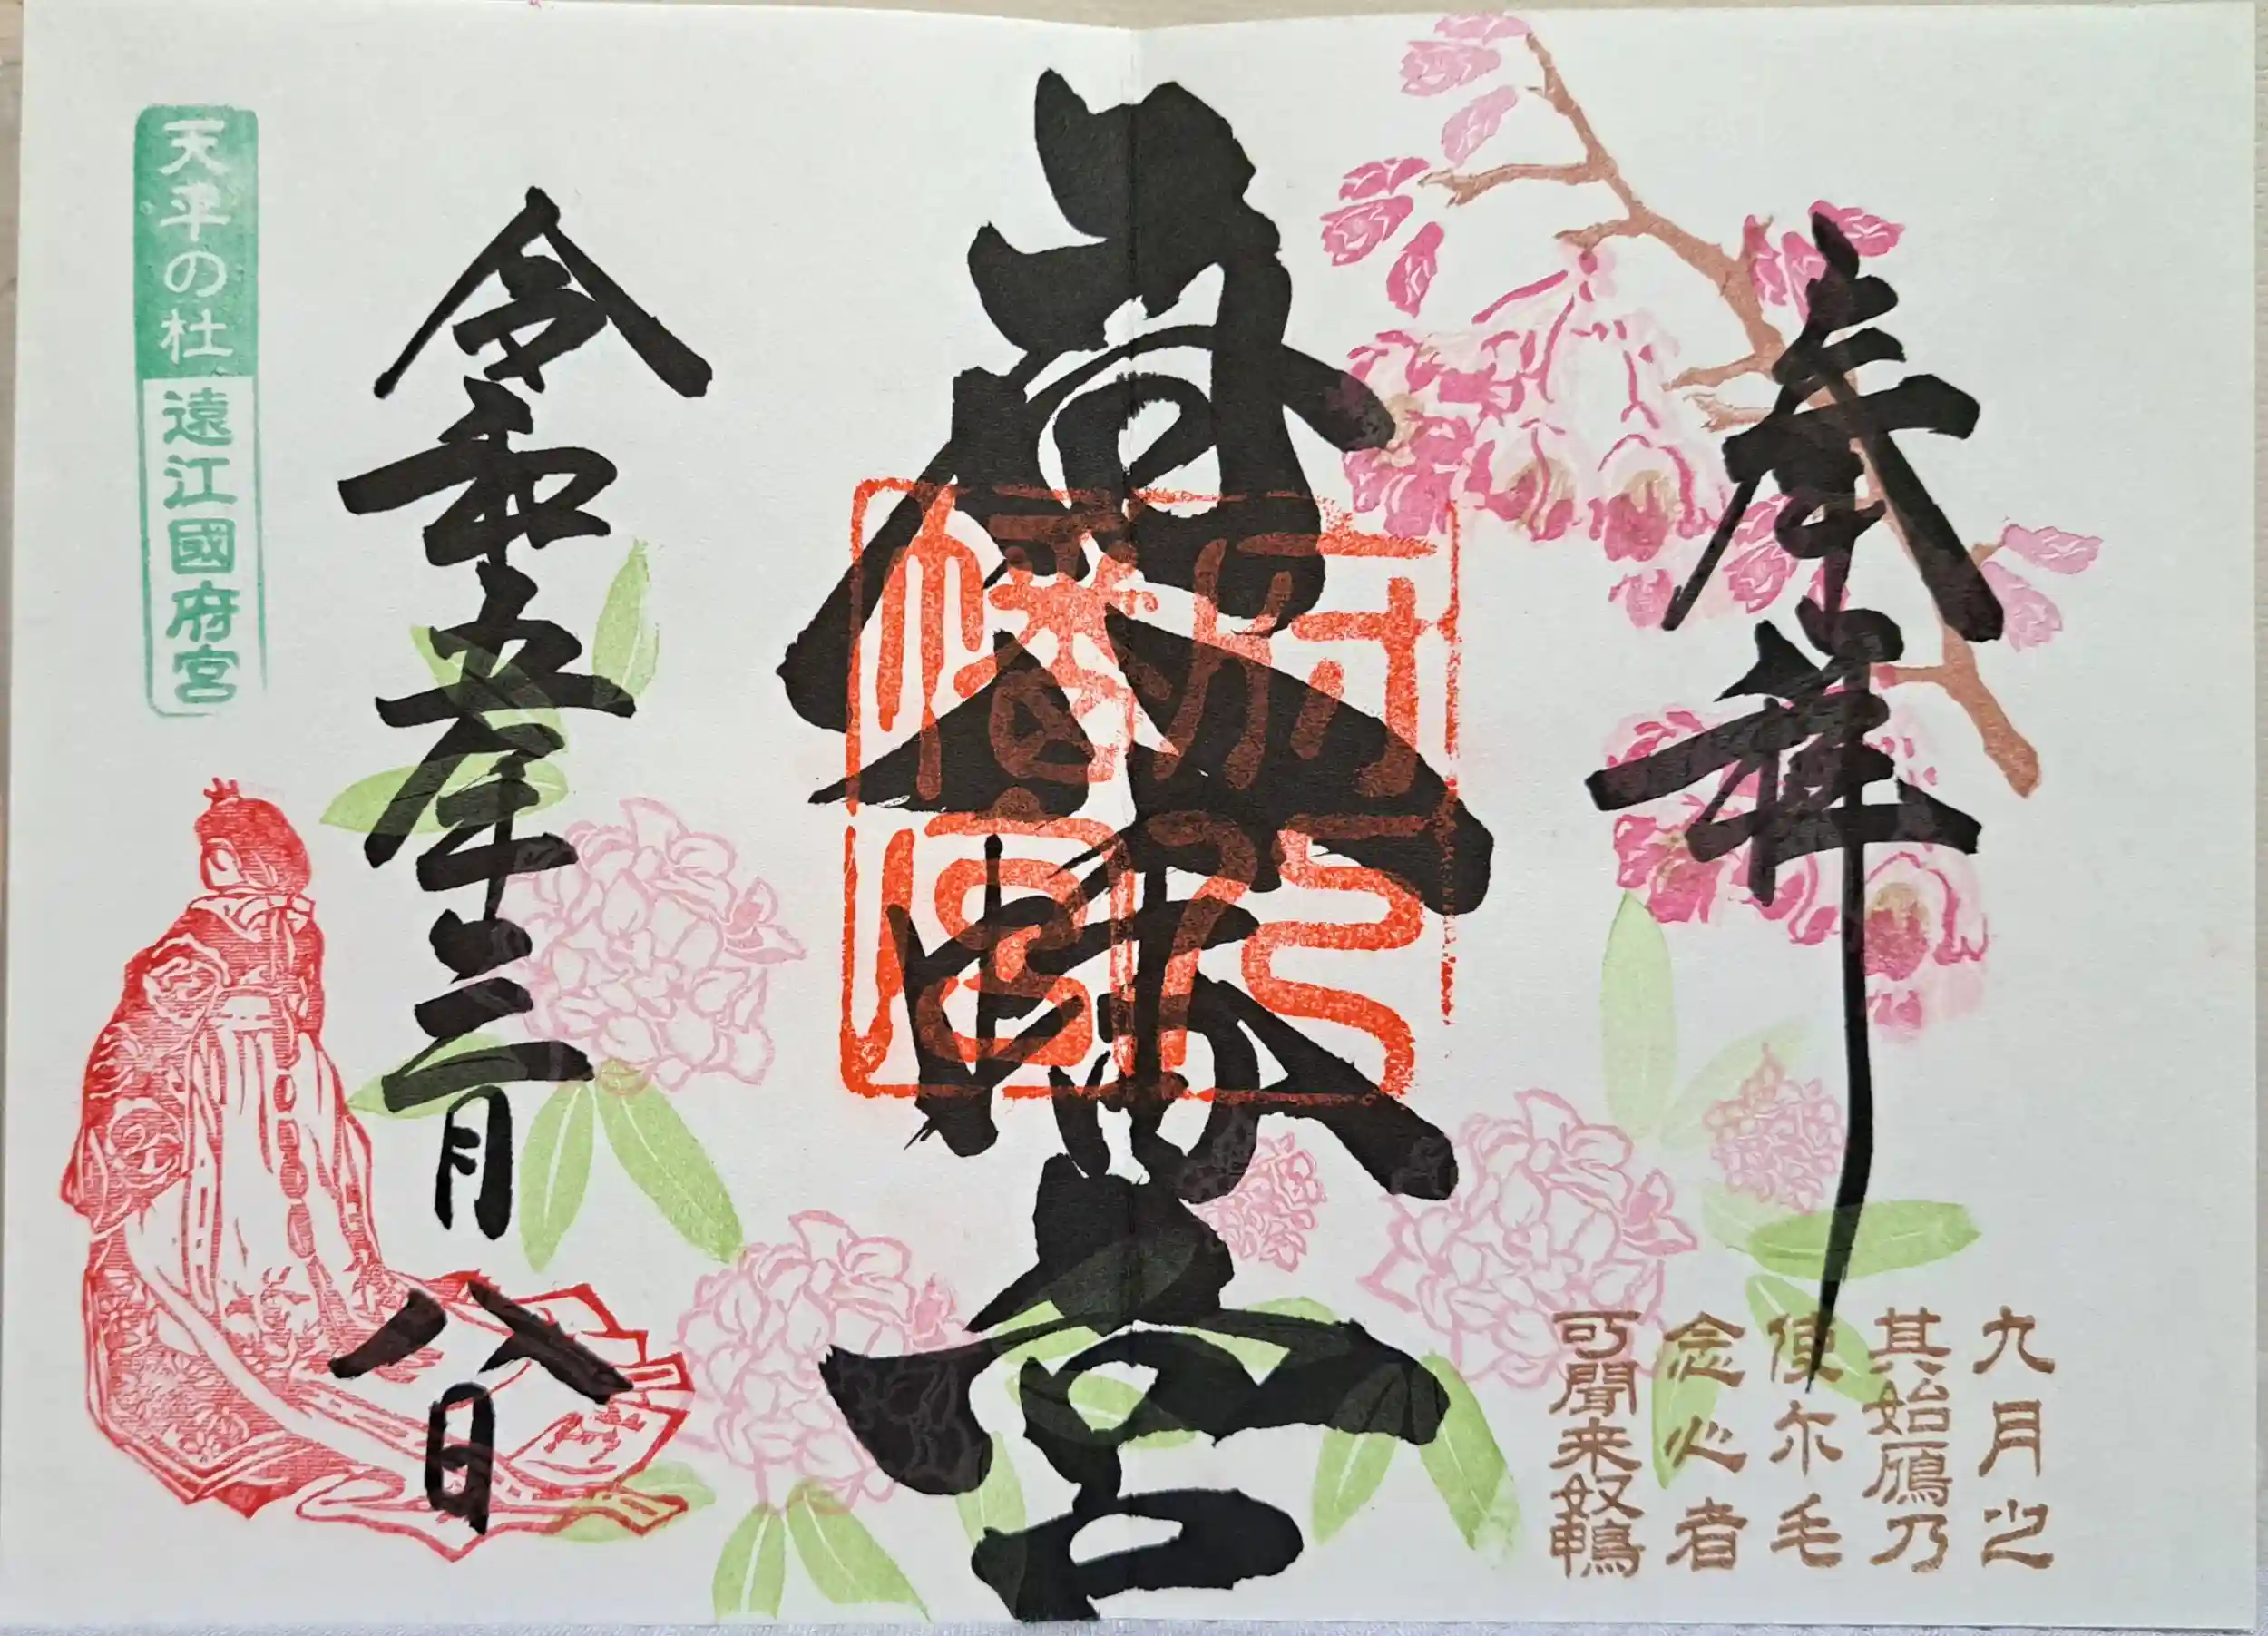 奉拝
九月之
其始鴈乃
使尓毛
念心者
可聞来奴鴨
府八幡宮
令和五年三月八日
天平の杜
遠江國府宮